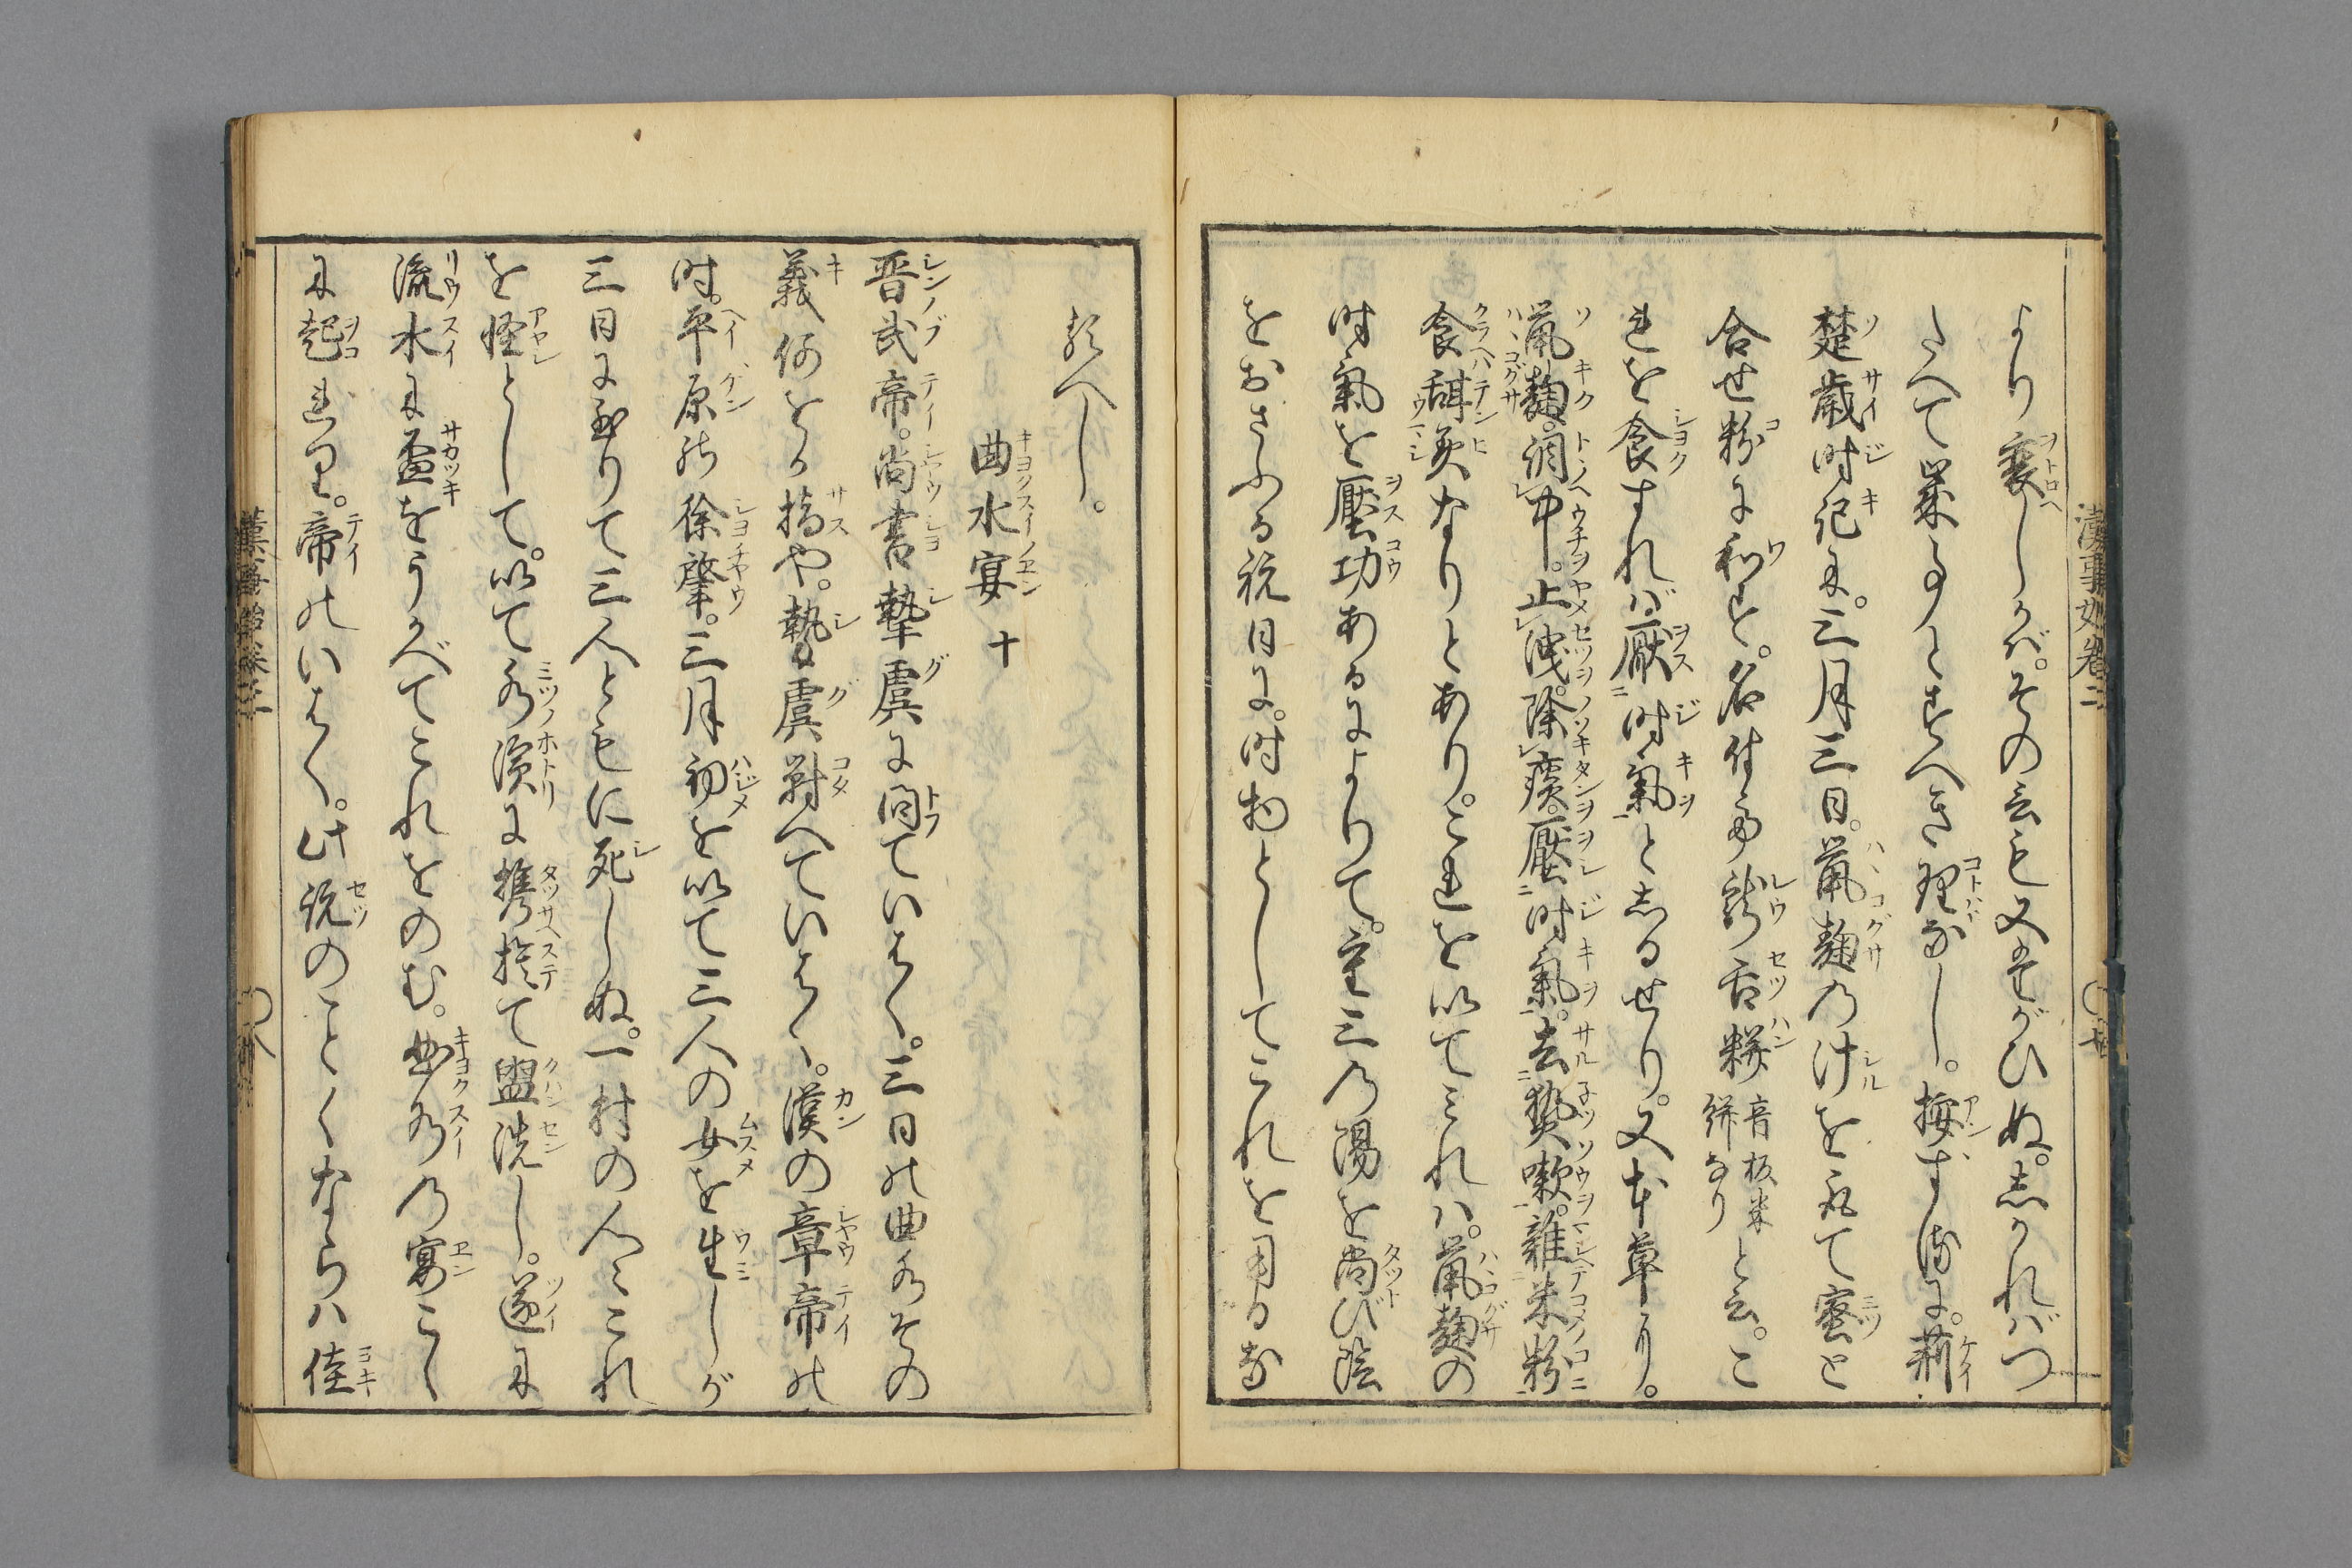 より衰しかば。その云も又たがひぬ。しかればつ
たへて葉るとすへき理なし。按する〻に。荊
楚歳時記に。三月三日。鼠麹の汁を取て蜜と
合せ粉に和す。名付て龍舌䉽音板米餅なりと云。こ
れを食すれば厭時氣としるせり。又本草に。
鼠麹。調中。止洩。除痰。壓時氣。去熱嗽。雜米粉
食甜美なりとあり。これを以てみれハ。鼠麹の
時氣を壓功あるによりて。重三の陽を尚び陰
をおさふる祝日に。時物としてこれを用るな
るへし。
曲水宴 十
晋武帝。尚書摯虞に問ていはく。三日の曲水その
義何をか指や。摯虞對へていはく。漢の章帝の
時。平原の徐肇。三月初を以て三人の女を生しが
三日に至りて三人ともに死しぬ。一村の人〻これ
を怪として。以て水濱に携捨て盥洗し。遂に
流水に盃をうかべてこれをのむ。曲水の宴こゝ
に起れり。帝のいはく。此説のことくならハ佳